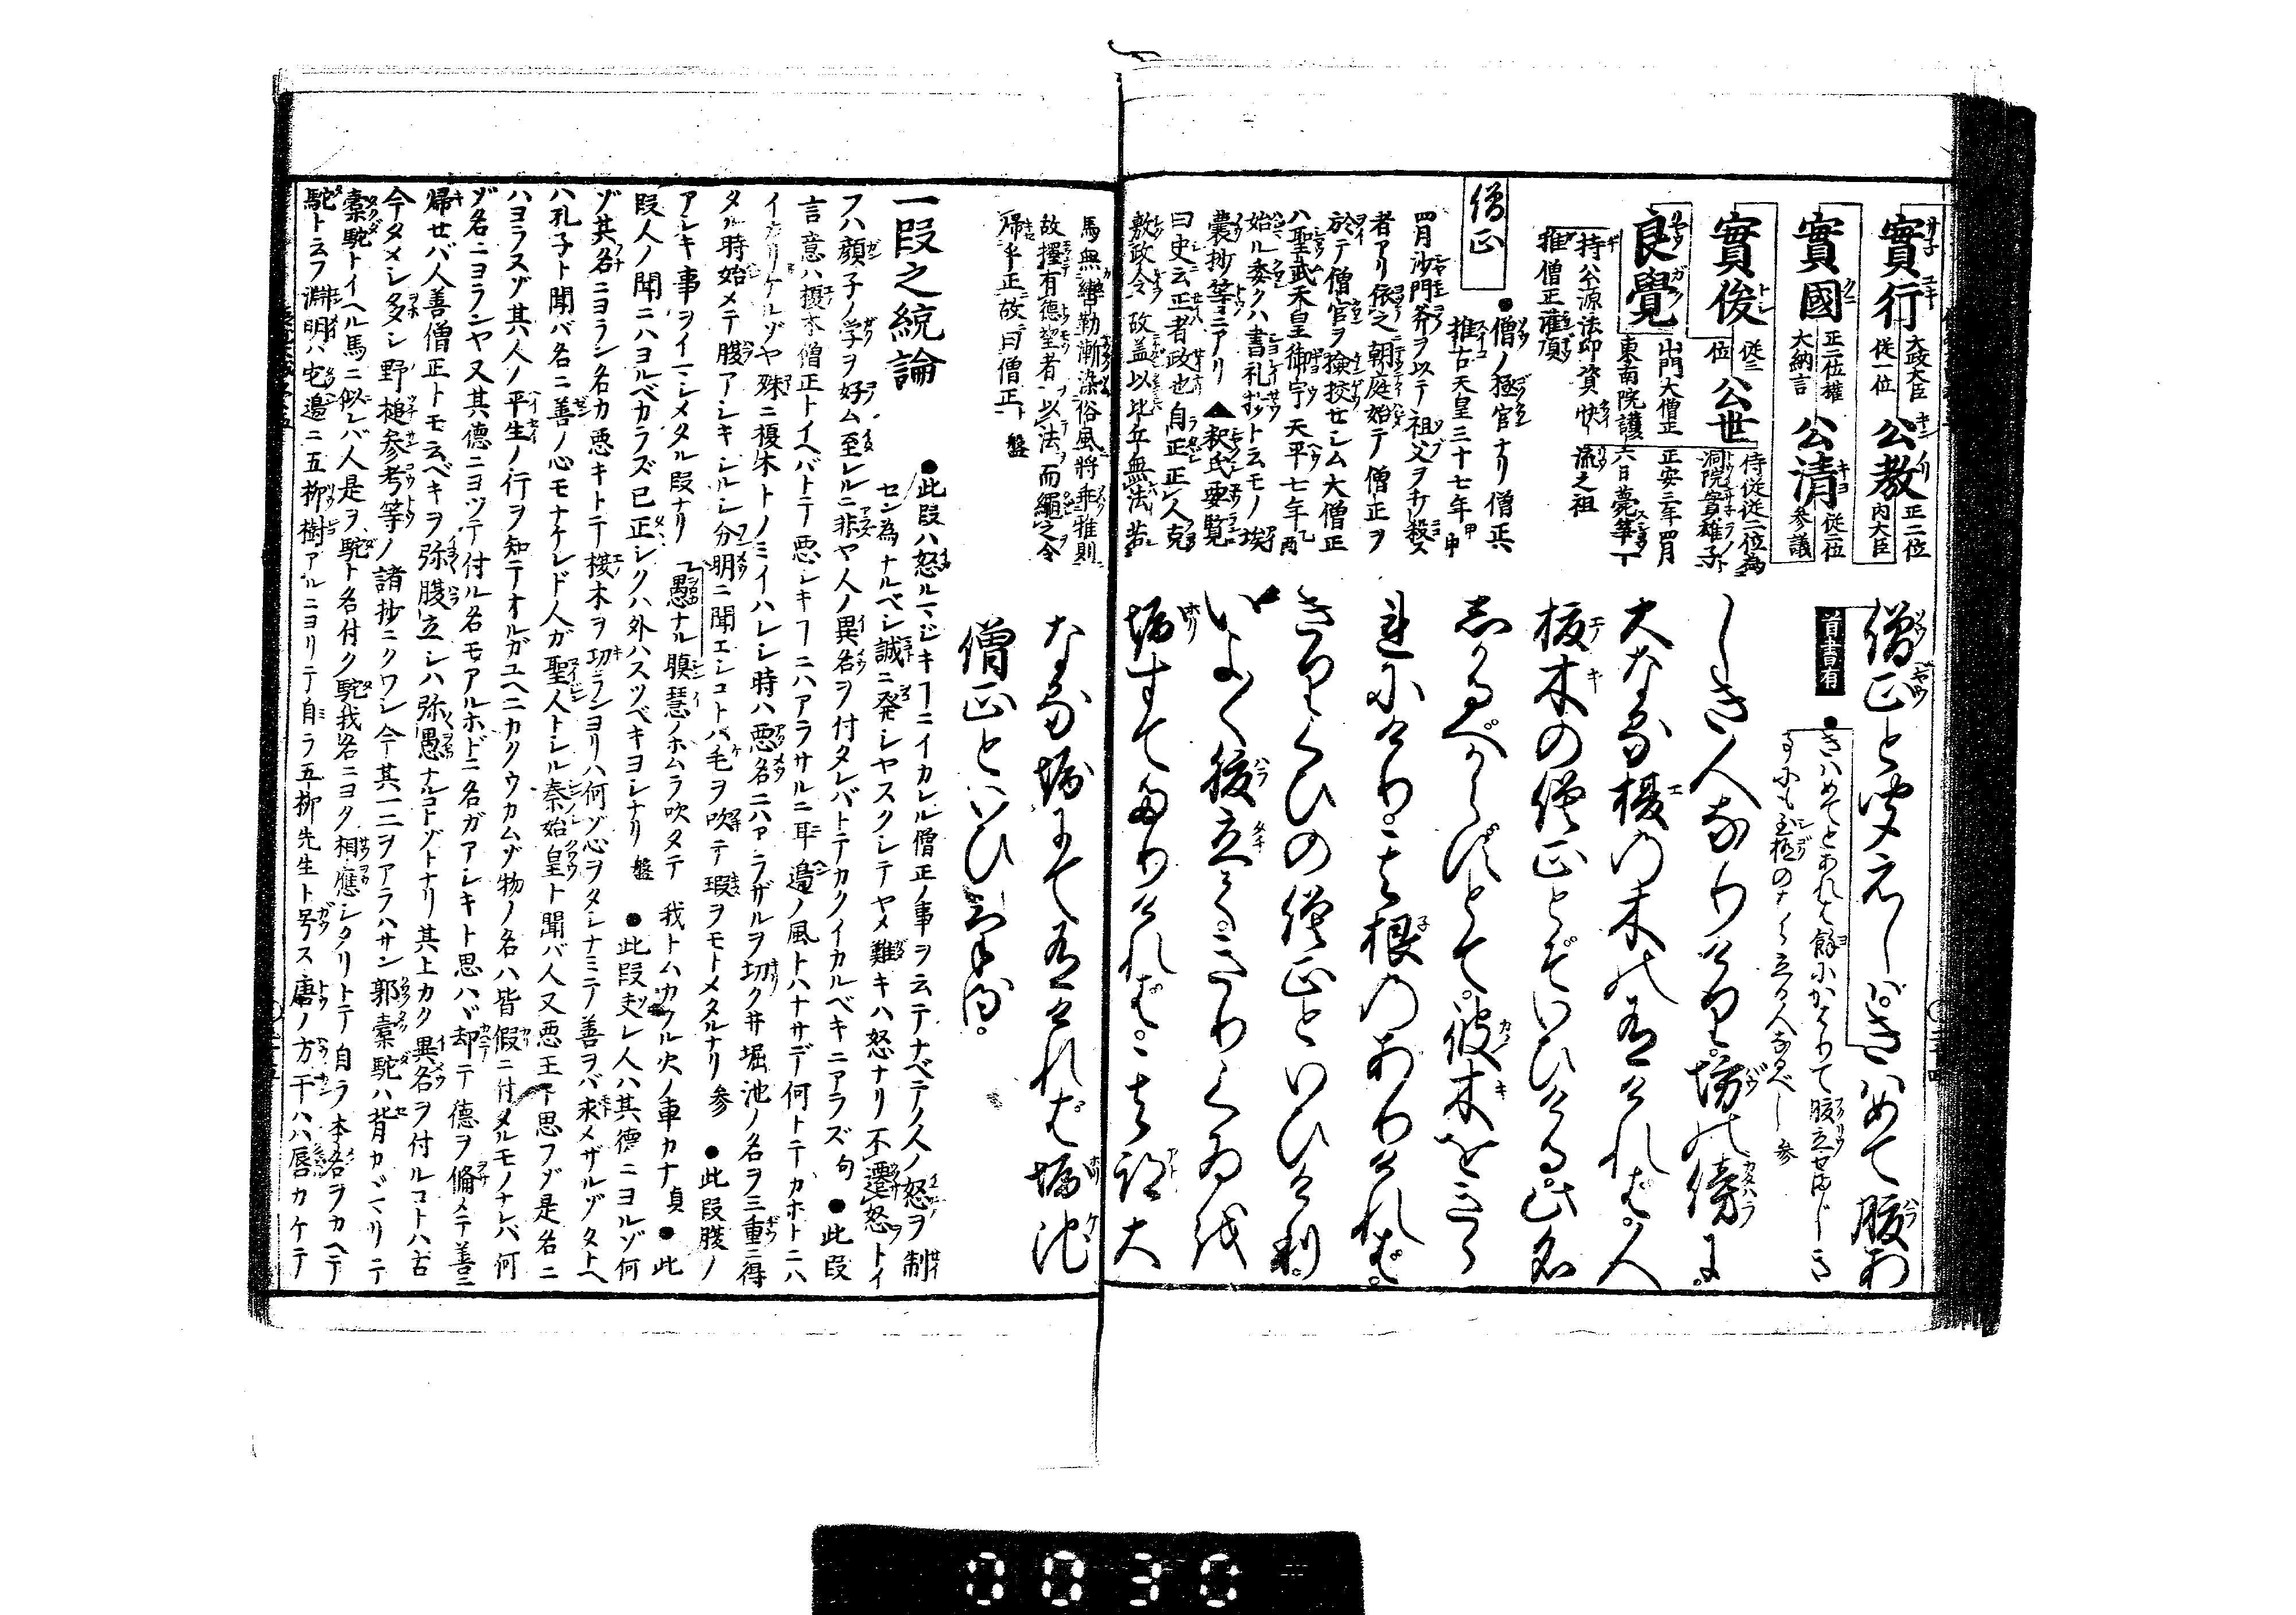 實行 大政大臣 従一位 公教 正二位 内大臣
實國 正二位権 大納言 公清 従二位 参議
實俊 従三位 公世 侍従従二位為 洞院實雄子ト
良覺 山門大僧正 東南院護 正安三年四月 六日薨
持公源法印資快 流之祖
推僧正
僧正
●僧ノ極官ナリ僧正ハ
推古天皇三十七年甲申
四月沙門斧ヲ以テ祖父ヲ打殺ス
者アリ依之朝庭始テ僧正ヲ
於テ僧官ヲ撿挍セシム大僧正
ハ聖武天皇御宇天平七年乙丙
始ル委クハ書礼抄ト云モノ埃
嚢抄等ニアリ▲釈氏要覧
曰史云正者政也自正正人克
敷政令故盖以比丘無法若
僧正と聞えしがきはめて腹あ
首書有
●きはめてとあれば餘にかはりて腹立せまじき
事にも至極のはら立る人なるべし 参
しき人なりけり。坊の傍に。
大なる榎の木の有ければ。人
榎木の僧正とぞいひける。此名
しかるべからずとて。彼木をきら
れにけり。其根のありければ。
きりくひの僧正といひけり。
いよ〱腹立て。きりくゐを
堀すてたりければ。其跡大
馬無轡勒漸染俗風將乖雅則
故擇有德望者以法而繩之令
歸乎正故曰僧正ト 盤
なる堀にて有ければ堀池
僧正といひける。
一段之統論
●此段ハ怒ルマジキヿニイカレル僧正ノ事ヲ云テナベテノ人ノ怒ヲ制
セン為ナルベシ誠ニ発シヤスクシテヤメ難キハ怒ナリ不遷怒トイ
フハ顔子ノ学ヲ好ム至レルニ非ヤ人ノ異名ヲ付タレバトテカクイカルベキニアラズ句 ●此段
言意ハ榎木僧正トイヘバトテ悪シキヿニハアラサルニ耳邊ノ風トハナサデ何トテカホトニハ
イカリケルゾヤ殊ニ榎木トノミイハレシ時ハ悪名ニハアラザルヲ切クヰ堀池ノ名ヲ三重ニ得
タル時始メテ腹アシキシルシ分明ニ聞エシコトバ毛ヲ吹テ瑕ヲモトメタルナリ 参 ●此段腹ノ
アシキ事ヲイマシメタル段ナリ 愚ナル瞋恚ノホムラ吹タテ 我トムカフル火ノ車カナ 貞 ●此
段人ノ聞ニハヨルベカラズ已正シクハ外ハスツベキヨシナリ 盤 ●此段夫レ人ハ其德ニヨルゾ何
ゾ其名ニヨラン名カ悪キトテ榎木ヲ切ランヨリハ何ゾ心ヲタシナミテ善ヲバ求メザルゾタトヘ
ハ孔子ト聞バ名ニ善ノ心モナケレド人ガ聖人トシル秦始皇ト聞バ人又悪王ト思フゾ是名ニ
ハヨラスゾ其人ノ平生ノ行ヲ知テオルガユヘニカクウカムゾ物ノ名ハ皆假ニ付タルモノナレバ何
ゾ名ニヨランヤ又其德ニヨツテ付ル名モアルホドニ名ガアシキト思ハヾ却テ德ヲ脩メテ善ニ
歸セバ人善僧正トモ云ベキヲ弥腹立シハ弥愚ナルコトゾトナリ其上カク異名ヲ付ルコトハ古
今タメシ多シ野槌参考等ノ諸抄ニクワシ今其一二ヲアラハサン郭橐駝ハ背カヾマリテ
橐駝トイヘル馬ニ似レバ人是ヲ駝ト名付ク駝我名ニヨク相應シタリトテ自ラ本名ヲカヘテ
駝ト云フ淵明ハ宅邉ニ五柳樹アルニヨリテ自ラ五柳先生ト号ス唐ノ方干ハ唇カケテ
0030